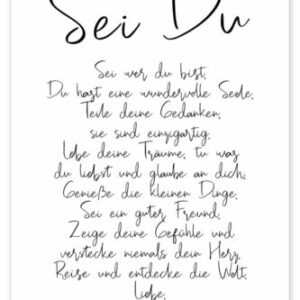 Sei Du
Sei wer du bist,
Du hast eine wundervolle Seele,
Teile deine Gedanken,
sie sind einzigartig,
Lebe deine Träume, tu was
du liebst und glaube an dich,
Genieße die kleinen Dinge,
Sei ein guter Freund,
Zeige deine Gefühle und
verstecke niemals dein Herz,
Reise und entdecke die Welt,
Liebe,